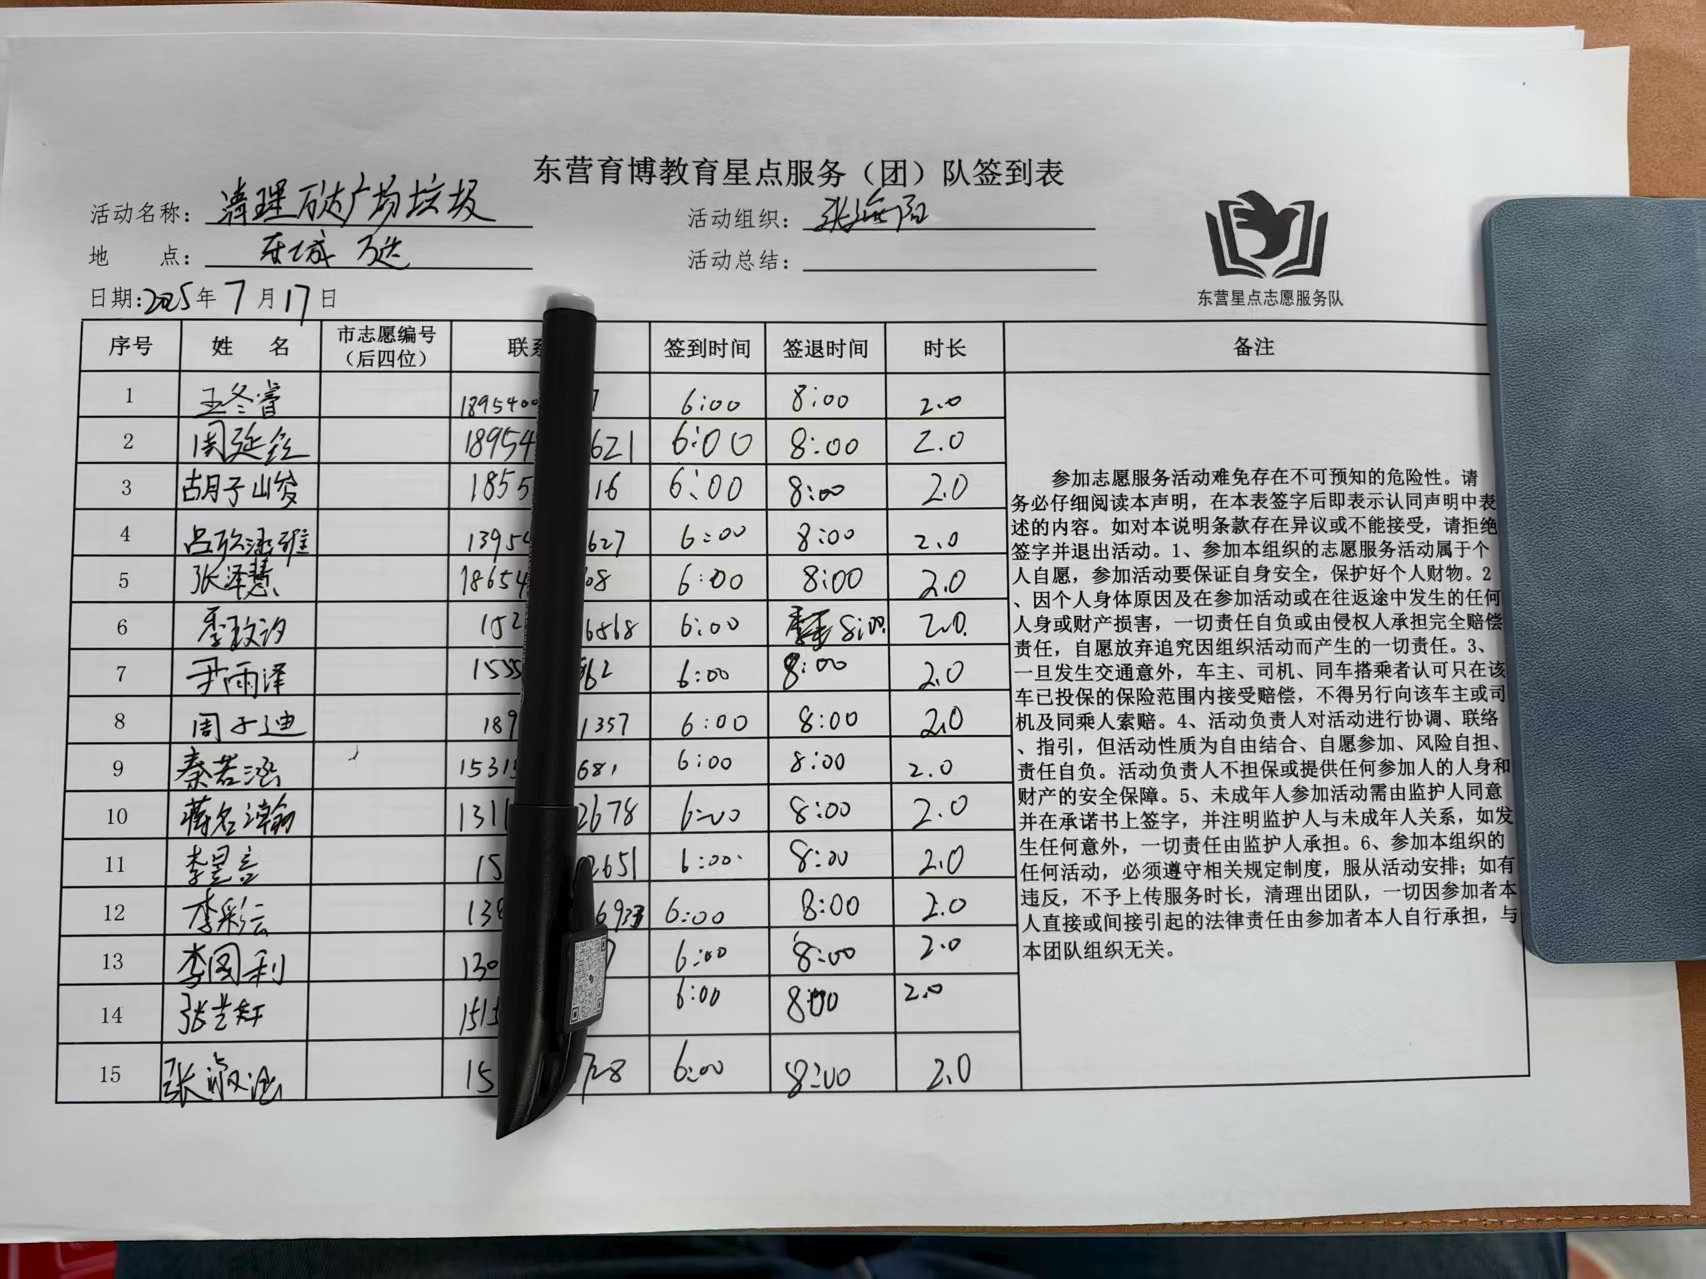 东营育博教育星点服务（团）队签到表
活动名称：清理万达广场垃圾 活动组织：张海阳
地 点：东城 万达 活动总结：
东营星点志愿服务队
日期：2025年7月17日
序号 姓 名 市志愿编号（后四位） 联系 签到时间 签退时间 时长 备注
1 王冬睿 1895400 7 6:00 8:00 2.0
2 周延 18954 621 6:00 8:00 2.0
3 胡子峻 1855 16 6:00 8:00 2.0
4 吕欣 13954 627 6:00 8:00 2.0
5 张泽慧 18654 08 6:00 8:00 2.0
6 季玟汐 152 6568 6:00 8:00 2.0
7 尹雨泽 1555 62 6:00 8:00 2.0
8 周子迪 189 1357 6:00 8:00 2.0
9 秦若涵 15315 681 6:00 8:00 2.0
10 蒋名瀚 1311 2678 6:00 8:00 2.0
11 李昱言 15 2651 6:00 8:00 2.0
12 李彩云 138 6933 6:00 8:00 2.0
13 李图利 130 7 6:00 8:00 2.0
14 张芸 1515 6:00 8:00 2.0
15 张淑 15 728 6:00 8:00 2.0
参加志愿服务活动难免存在不可预知的危险性。请
务必仔细阅读本声明，在本表签字后即表示认同声明中表
述的内容。如对本说明条款存在异议或不能接受，请拒绝
签字并退出活动。1、参加本组织的志愿服务活动属于个
人自愿，参加活动要保证自身安全，保护好个人财物。2
、因个人身体原因及在参加活动或在往返途中发生的任何
人身或财产损害，一切责任自负或由侵权人承担完全赔偿
责任，自愿放弃追究因组织活动而产生的一切责任。3、
一旦发生交通意外，车主、司机、同车搭乘者认可只在该
车已投保的保险范围内接受赔偿，不得另行向该车主或司
机及同乘人索赔。4、活动负责人对活动进行协调、联络
、指引，但活动性质为自由结合、自愿参加、风险自担、
责任自负。活动负责人不担保或提供任何参加人的人身和
财产的安全保障。5、未成年人参加活动需由监护人同意
并在承诺书上签字，并注明监护人与未成年人关系，如发
生任何意外，一切责任由监护人承担。6、参加本组织的
任何活动，必须遵守相关规定制度，服从活动安排；如有
违反，不予上传服务时长，清理出团队，一切因参加者本
人直接或间接引起的法律责任由参加者本人自行承担，与
本团队组织无关。